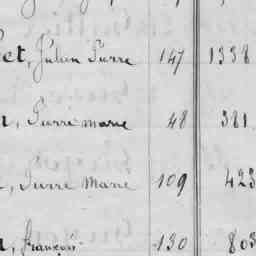 et, Julien Pierre 147 1338
, Pierre marie 48 381
, Pierre Marie 109 423
, françois 130 803